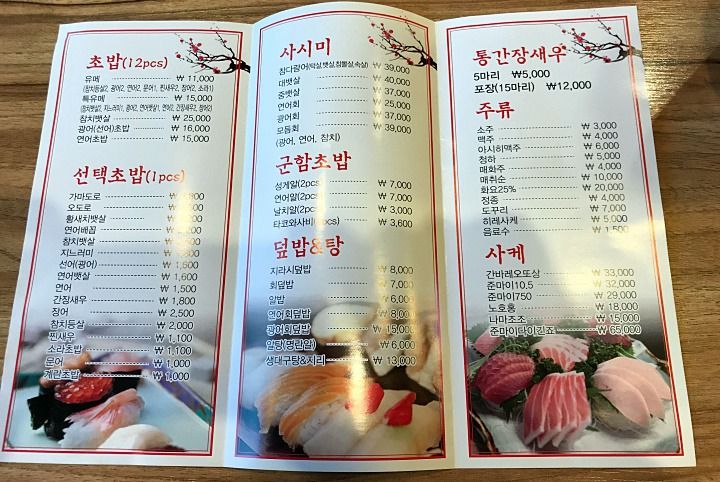 초밥(12pcs)
유메 ₩ 11,000
(참치등살2, 광어2, 연어2, 문어1, 찐새우2, 장어2, 소라1)
특유메 ₩ 15,000
참치뱃살 ₩ 25,000
광어(선어)초밥 ₩ 16,000
연어초밥 ₩ 15,000
선택초밥(1pcs)
가마도로
오도로
황새치뱃살
연어배꼽
참치뱃살
지느러미
선어(광어) ₩ 1,600
연어뱃살 ₩ 1,600
연어 ₩ 1,500
간장새우 ₩ 1,800
장어 ₩ 2,500
참치등살 ₩ 2,000
찐새우 ₩ 1,100
소라초밥 ₩ 1,100
문어 ₩ 1,000
계란초밥 ₩ 1,000
사시미
참다랑어(턱살,뱃살,참물살,속살) ₩ 39,000
대뱃살 ₩ 40,000
중뱃살 ₩ 37,000
연어회 ₩ 25,000
광어회 ₩ 37,000
모듬회 ₩ 39,000
(광어, 연어, 참치)
군함초밥
성게알(2pcs) ₩ 7,000
연어알(2pcs) ₩ 7,000
날치알(2pcs) ₩ 3,000
타코와사비 ₩ 3,600
덮밥&탕
지라시덮밥 ₩ 8,000
회덮밥 ₩ 7,000
알밥 ₩ 6,000
연어회덮밥 ₩ 8,000
광어회덮밥 ₩ 15,000
알탕(명란알) ₩ 6,000
생대구탕&지리 ₩ 13,000
통간장새우
5마리 ₩5,000
포장(15마리) ₩12,000
주류
소주 ₩ 3,000
맥주 ₩ 4,000
아시히맥주 ₩ 6,000
청하 ₩ 5,000
매화주 ₩ 4,000
매취순 ₩ 10,000
화요25% ₩ 20,000
정종 ₩ 4,000
도꾸리 ₩ 7,000
히레사케 ₩ 5,000
음료수 ₩ 1,500
사케
간바레오또상 ₩ 33,000
준마이10.5 ₩ 32,000
준마이750 ₩ 29,000
노호홍 ₩ 18,000
나마조조 ₩ 15,000
준마이다이긴죠 ₩ 65,000